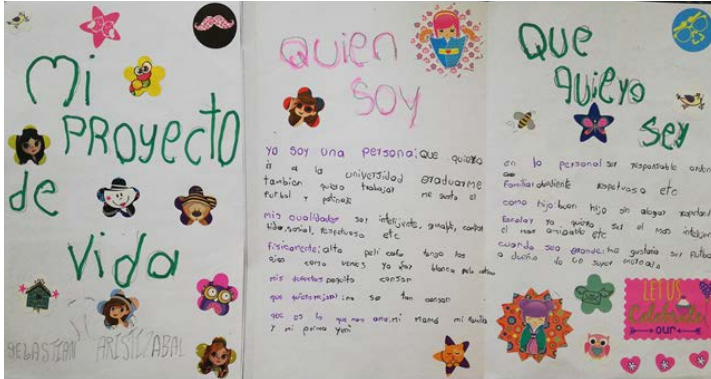 Mi
PROyecto
de
Vida
SEBASTIAN ARISTIZABAL
QUIEN
SOY
yo soy una persona: que quiero
ir a la universidad graduarme
tambien quiero trabajar me gusta el
futbol y patinaje
mis cualidades soy inteligente, amable,
social, respetuoso etc
fisicamente: alto pelo cafe tengo los
ojos como yo soy blanco pelo
mis defectos poquito canson
que quiero mejorar: no ser tan canson
que es lo que mas amo: mi mama mi familia
y mi prima yuri
QUE
quiero
ser
en lo personal ser responsable orden
Familiar obediente respetuoso etc
como hijo: buen hijo sin alegar
Escolar yo quiero ser el mas inteligen
el mas amigable etc
cuando sea grande: me gustaria ser futbo
o dueño de un super mercado
LET US
Celebrate
OUR